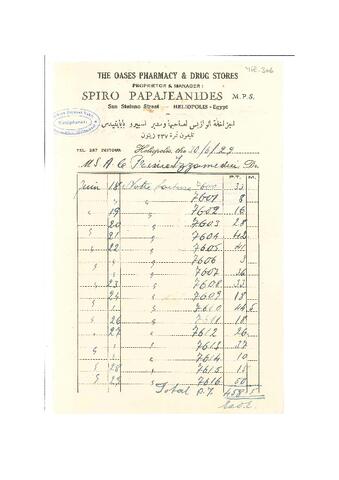 YTE-306
THE OASES PHARMACY & DRUG STORES
PROPRIETOR & MANAGER:
SPIRO PAPAJEANIDES M.P.S.
San Stefano Street — HELIOPOLIS - Egypt
اجزاخانة الوازيس لصاحبها ومدير اسبيرو باباينيدس
تليفون نمرة ٢٣٧ زيتون
TEL. 237 ZEITOUN Heliopolis, the 30/6/29
M. S. A. C Prince Izzameddin Dr.
P.T. M.
Juin 18 Notre facture 7600 33
" " 7601 8
" 19 " 7602 16
" 20 " 7603 28
" 21 " 7604 42
" 22 " 7605 41
" " 7606 3
" " 7607 36
" 23 " 7608 33
" 24 " 7609 15
" " 7610 44 5
" 26 " 7611 18
" 27 " 7612 26
" " 7613 37
" " 7614 10
" 28 " 7615 15
" 29 " 7616 50
Total P.T. 458 5